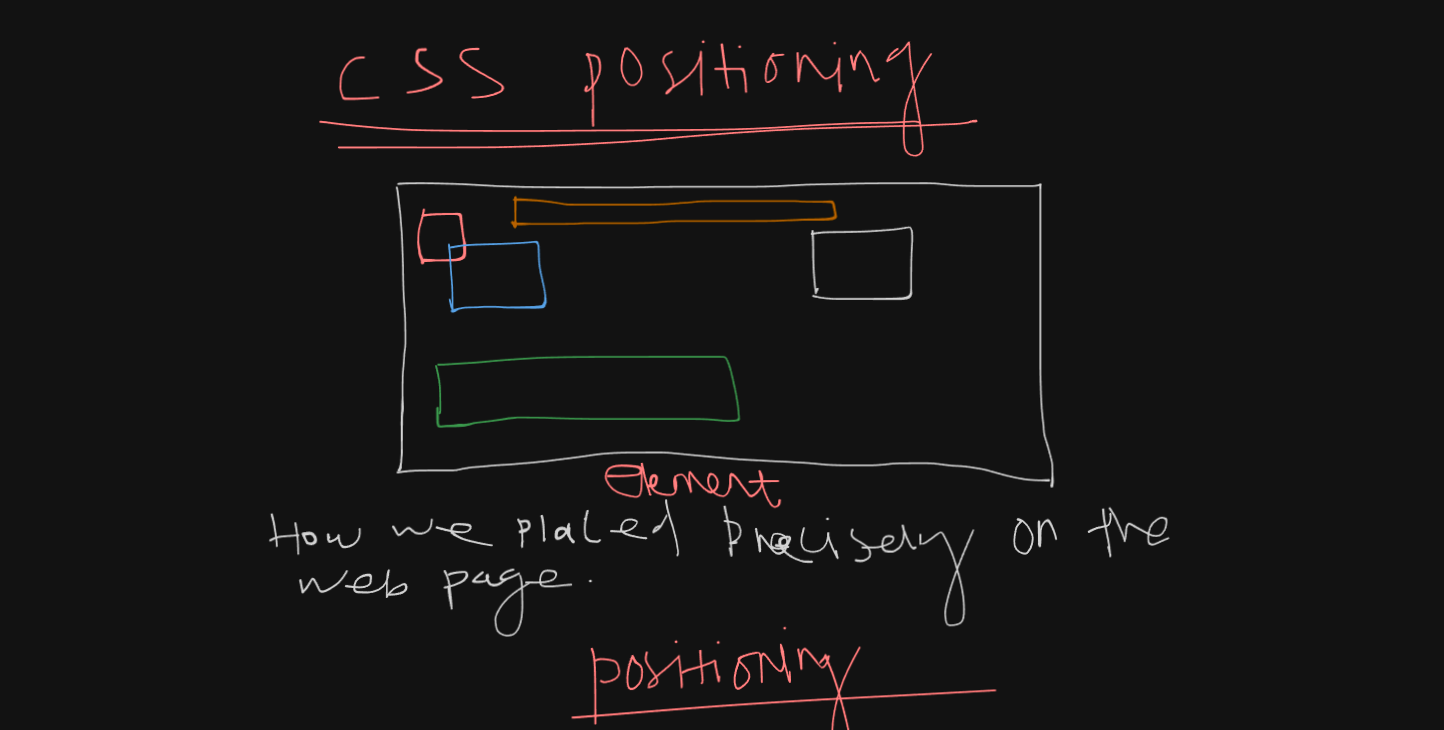 CSS positioning
Element
How we placed precisely on the
web page.
positioning